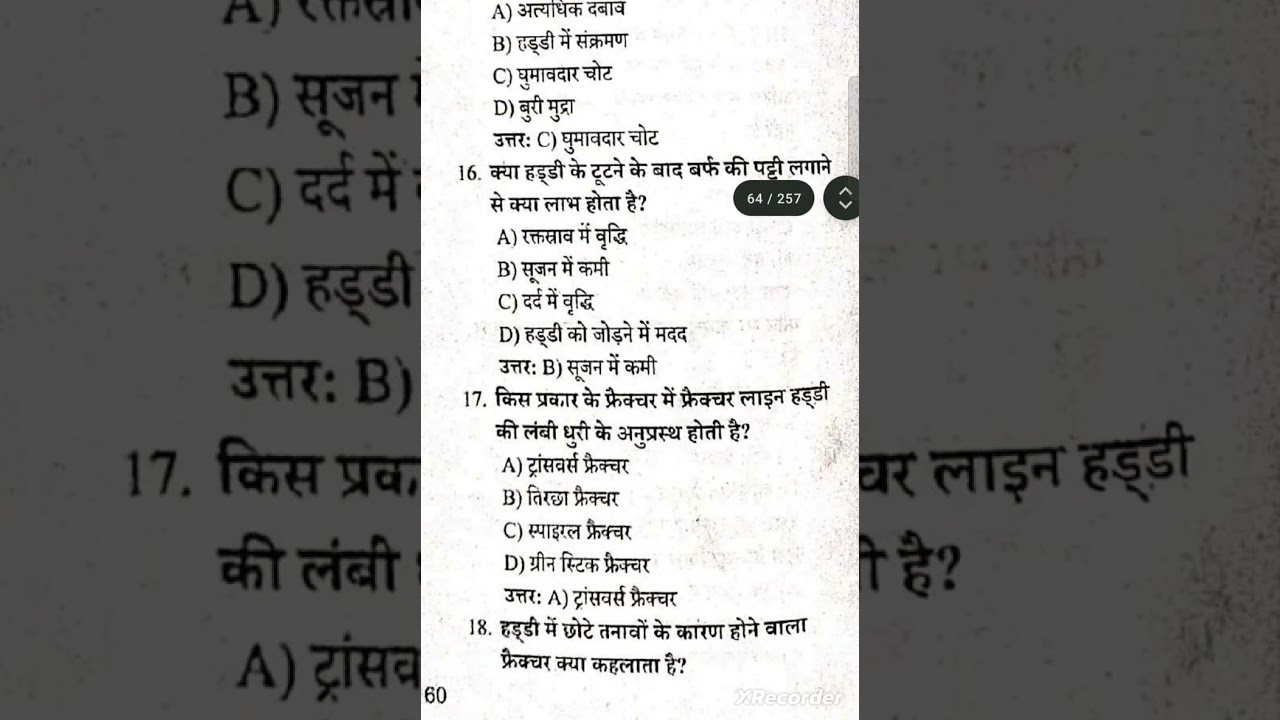 A) अत्यधिक दबाव
B) हड्डी में संक्रमण
C) घुमावदार चोट
D) बुरी मुद्रा
उत्तर: C) घुमावदार चोट
16. क्या हड्डी के टूटने के बाद बर्फ की पट्टी लगाने
से क्या लाभ होता है?
64 / 257
A) रक्तस्राव में वृद्धि
B) सूजन में कमी
C) दर्द में वृद्धि
D) हड्डी को जोड़ने में मदद
उत्तर: B) सूजन में कमी
17. किस प्रकार के फ्रैक्चर में फ्रैक्चर लाइन हड्डी
की लंबी धुरी के अनुप्रस्थ होती है?
A) ट्रांसवर्स फ्रैक्चर
B) तिरछा फ्रैक्चर
C) स्पाइरल फ्रैक्चर
D) ग्रीन स्टिक फ्रैक्चर
उत्तर: A) ट्रांसवर्स फ्रैक्चर
18. हड्डी में छोटे तनावों के कारण होने वाला
फ्रैक्चर क्या कहलाता है?
60
XRecorder
B) सूजन
C) दर्द में
D) हड्डी
उत्तर: B)
17. किस
लाइन हड्डी
की लंबी
है?
A)